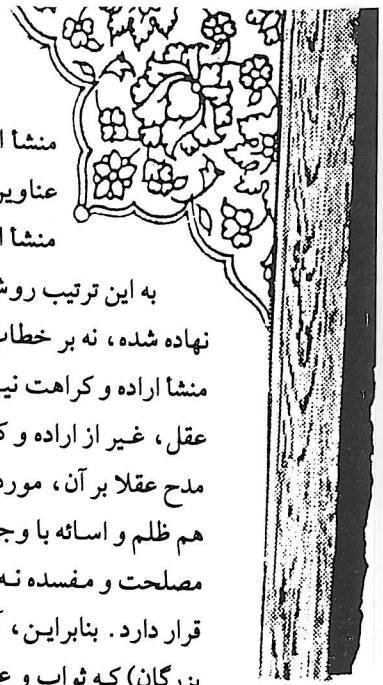 منشأ
عناوین
منشأ
به این ترتیب
نهاده شده، نه بر
منشأ اراده و کراهت
عقل، غیر از اراده و
مدح عقلا بر آن، مورد
هم ظلم و اسائه با
مصلحت و مفسده
قرار دارد. بنابراین،
بزرگان) که ثواب و